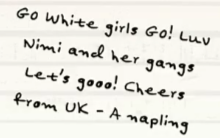 Go White girls Go! Luv
Nimi and her gangs
Let's gooo! Cheers
from UK - A napling